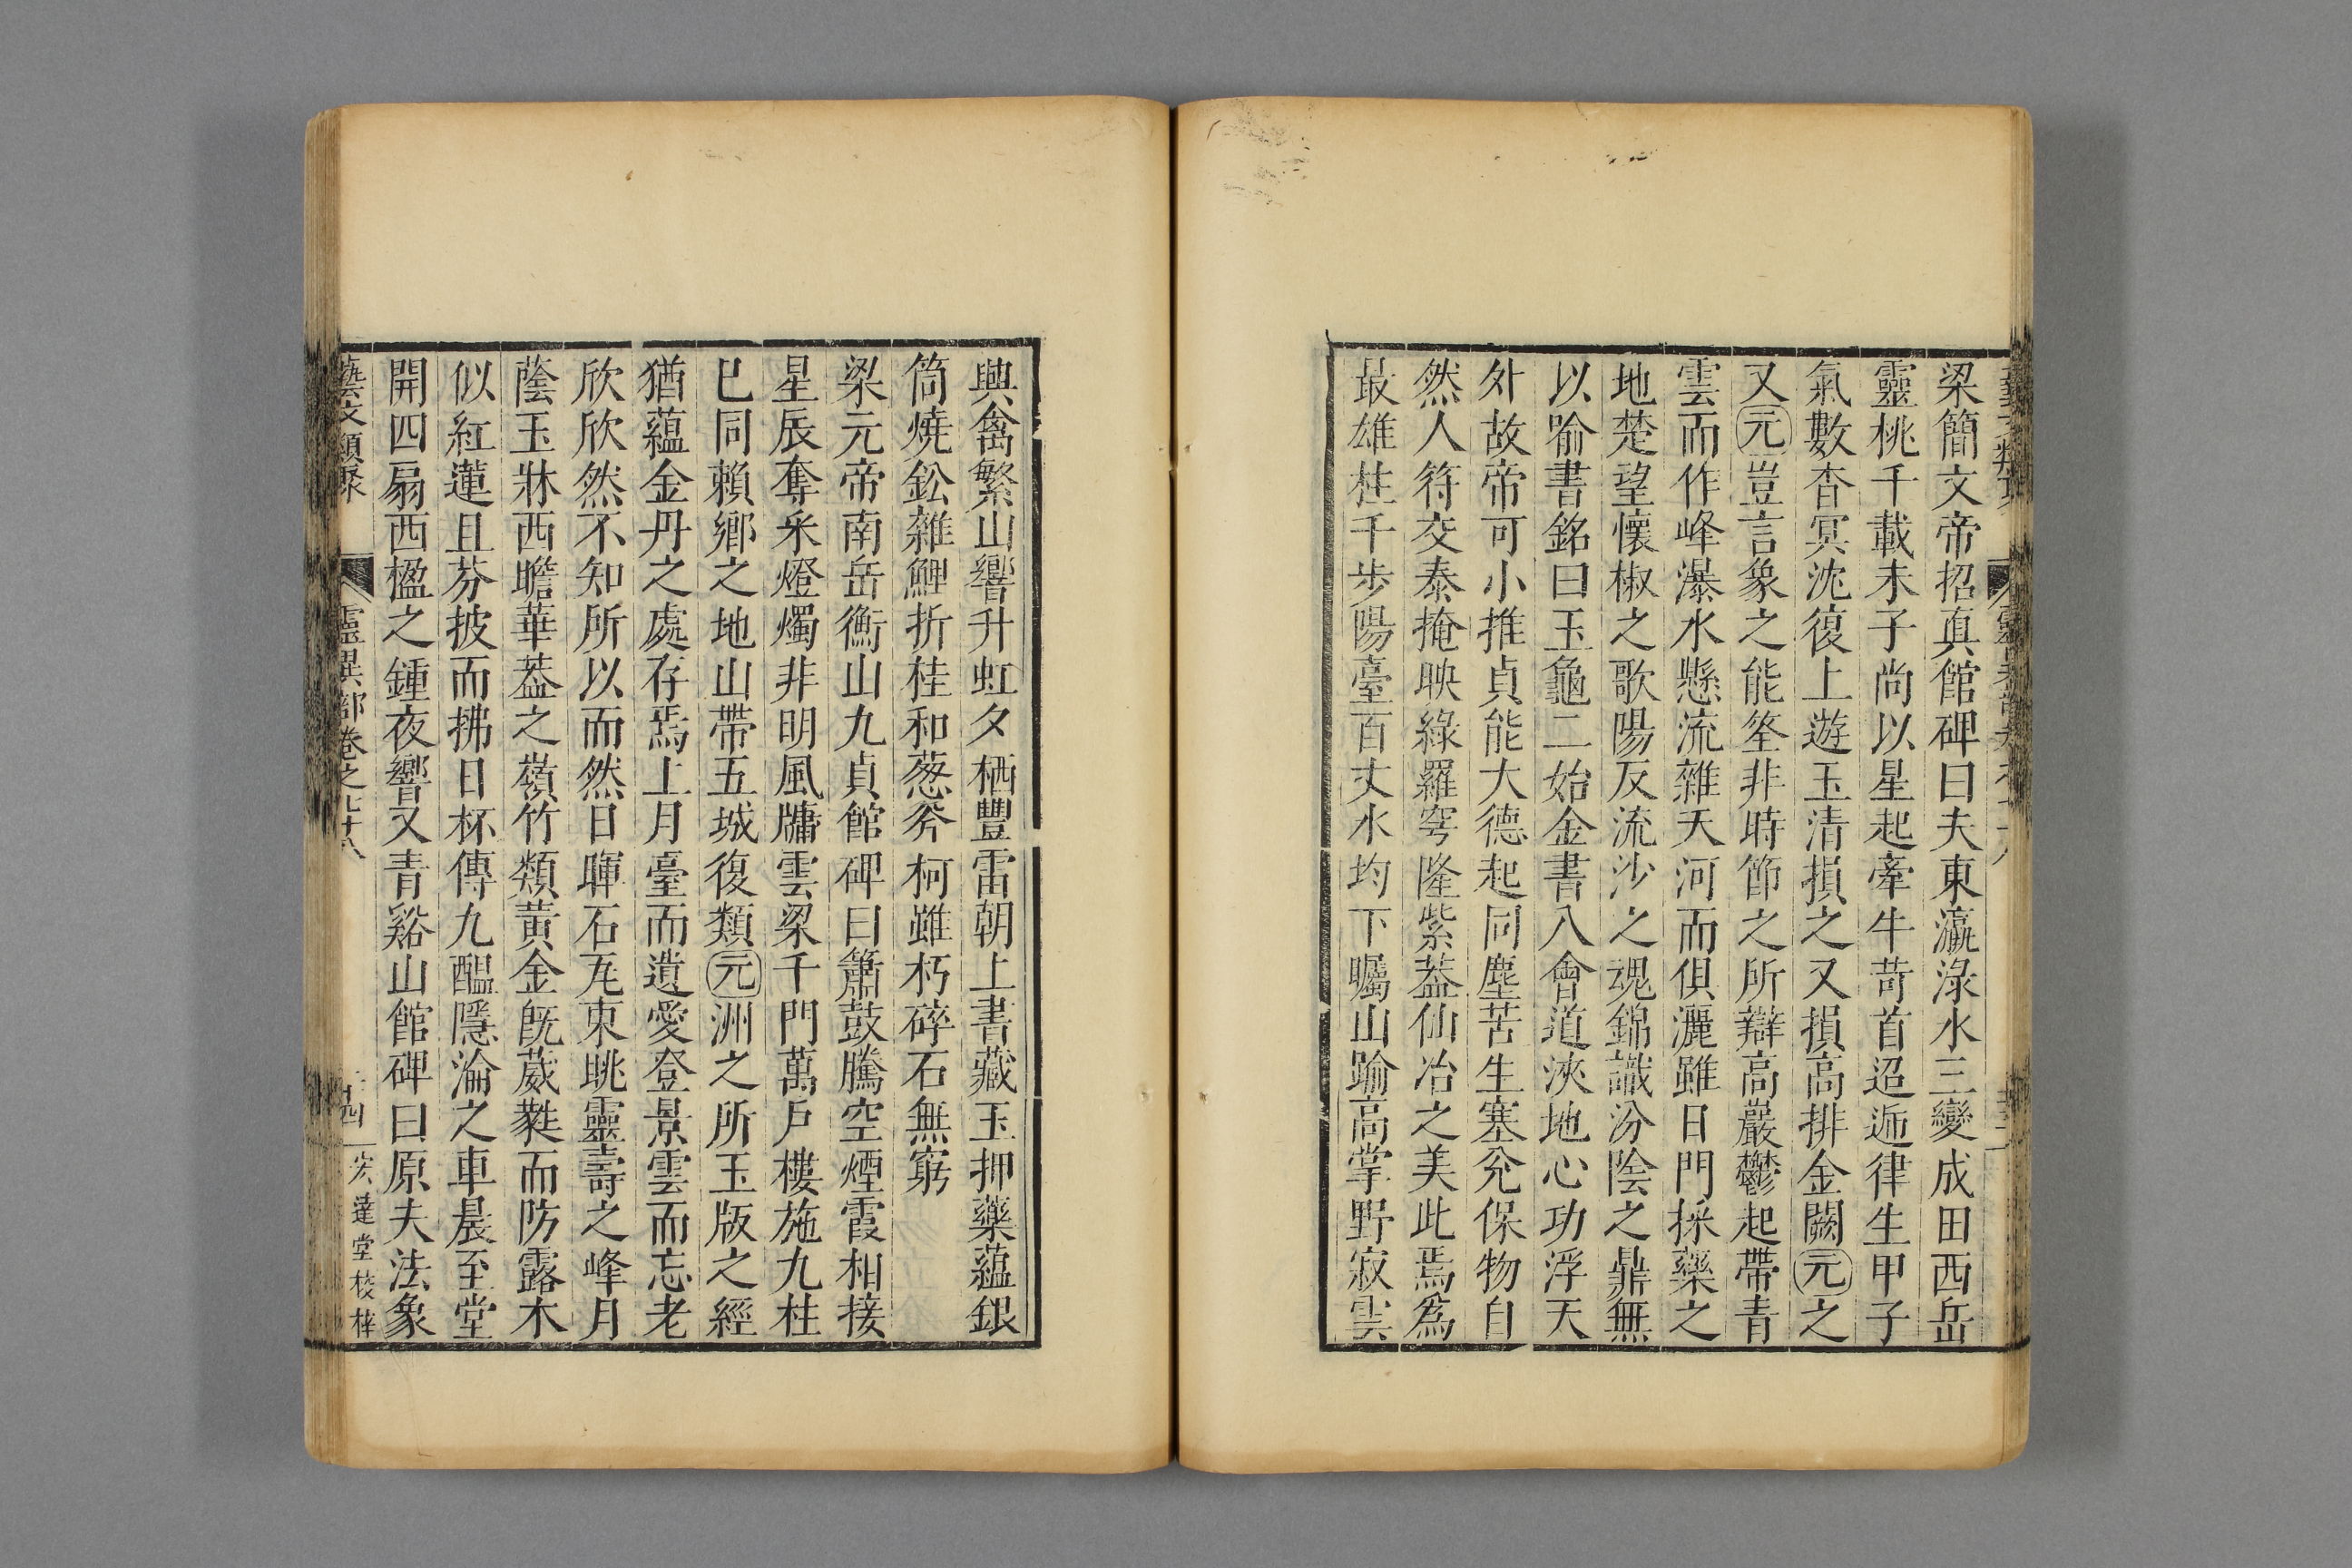 梁簡文帝招真館碑曰夫東瀛淥水三變成田西岳
靈桃千載未子尚以星起牽牛苛首迢遞律生甲子
氣數杳冥沈復上遊玉清損之又損高排金闕元之
又元豈言象之能筌非時節之所辯高巖鬱起帶青
雲而作峰瀑水懸流雜天河而俱灑雖日門採藥之
地楚望懷椒之歌陽反流沙之魂錦識汾陰之鼎無
以踰書銘曰玉龜二始金書八會道浹地心功浮天
外故帝可小推貞能大德起同塵苦生塞兊保物自
然人符交泰掩映綠羅穹隆紫葢仙冶之美此焉爲
最雄柱千步陽臺百丈水均下矚山踰高掌野寂雲
興禽繁山響升虹夕栖豐雷朝上書藏玉押藥蘊銀
筒燒鈆雜鯉折桂和葱斧柯雖朽碎石無窮
梁元帝南岳衡山九貞館碑曰簫鼓騰空煙霞相接
星辰奪采燈燭非明風牗雲梁千門萬戶樓施九柱
已同賴鄉之地山帶五城復類元洲之所玉版之經
猶蘊金丹之處存焉上月臺而遺愛登景雲而忘老
欣欣然不知所以而然日暉石瓦東眺靈壽之峰月
蔭玉牀西瞻華葢之嶺竹類黃金旣葳蕤而防露木
似紅蓮且芬披而拂日杯傳九醖隱淪之車晨至堂
開四扇西楹之鍾夜響又青谿山館碑曰原夫法象
藝文類聚
靈異部卷之七十八
四
宏達堂校梓